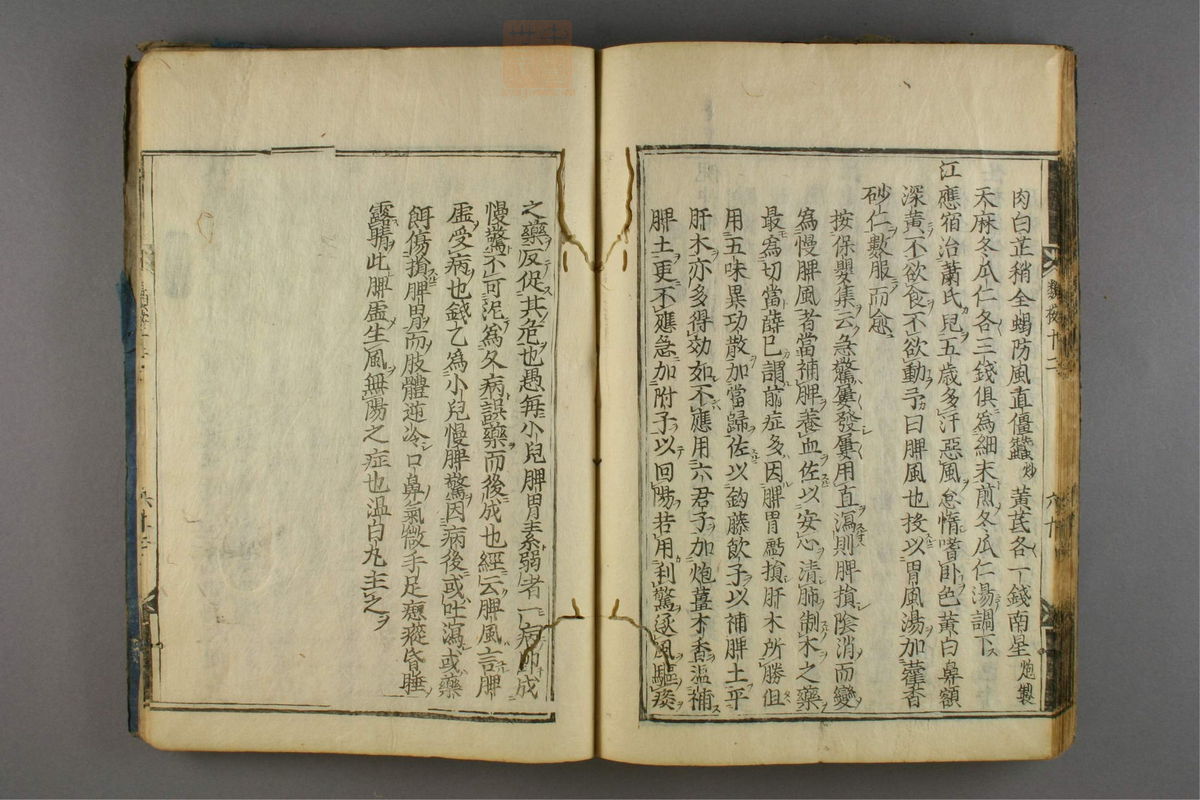 肉白芷稍全蝎防風直僵蠶炒黃芪各一錢南星炮製
天麻冬瓜仁各三錢俱為細末煎冬瓜仁湯調下
江應宿治蕭氏兒五歲多汗惡風怠惰嗜卧色黃白鼻額
深黃不欲食不欲動予曰脾風也投以胃風湯加藿香
砂仁數服而愈
按保嬰集云急驚屢發屢用直瀉則脾損陰消而變
為慢脾風者當補脾養血佐以安心清肺制木之藥
最為切當薛已謂前症多因脾胃虧損肝木所勝但
用五味異功散加當歸佐以鈎藤飲子以補脾土平
肝木亦多得効如不應用六君子加炮薑木香溫補
脾土更不應急加附子以回陽若用利驚逐風驅痰
之藥反促其危也愚每小兒脾胃素弱者一病即成
慢驚不可泥為久病誤藥而後成也經云脾風言脾
虛受病也錢乙為小兒慢脾驚因病後或吐瀉或藥
餌傷損脾胃而肢體逆冷口鼻氣微手足瘛瘲昏睡
露睛此脾虛生風無陽之症也溫白丸主之